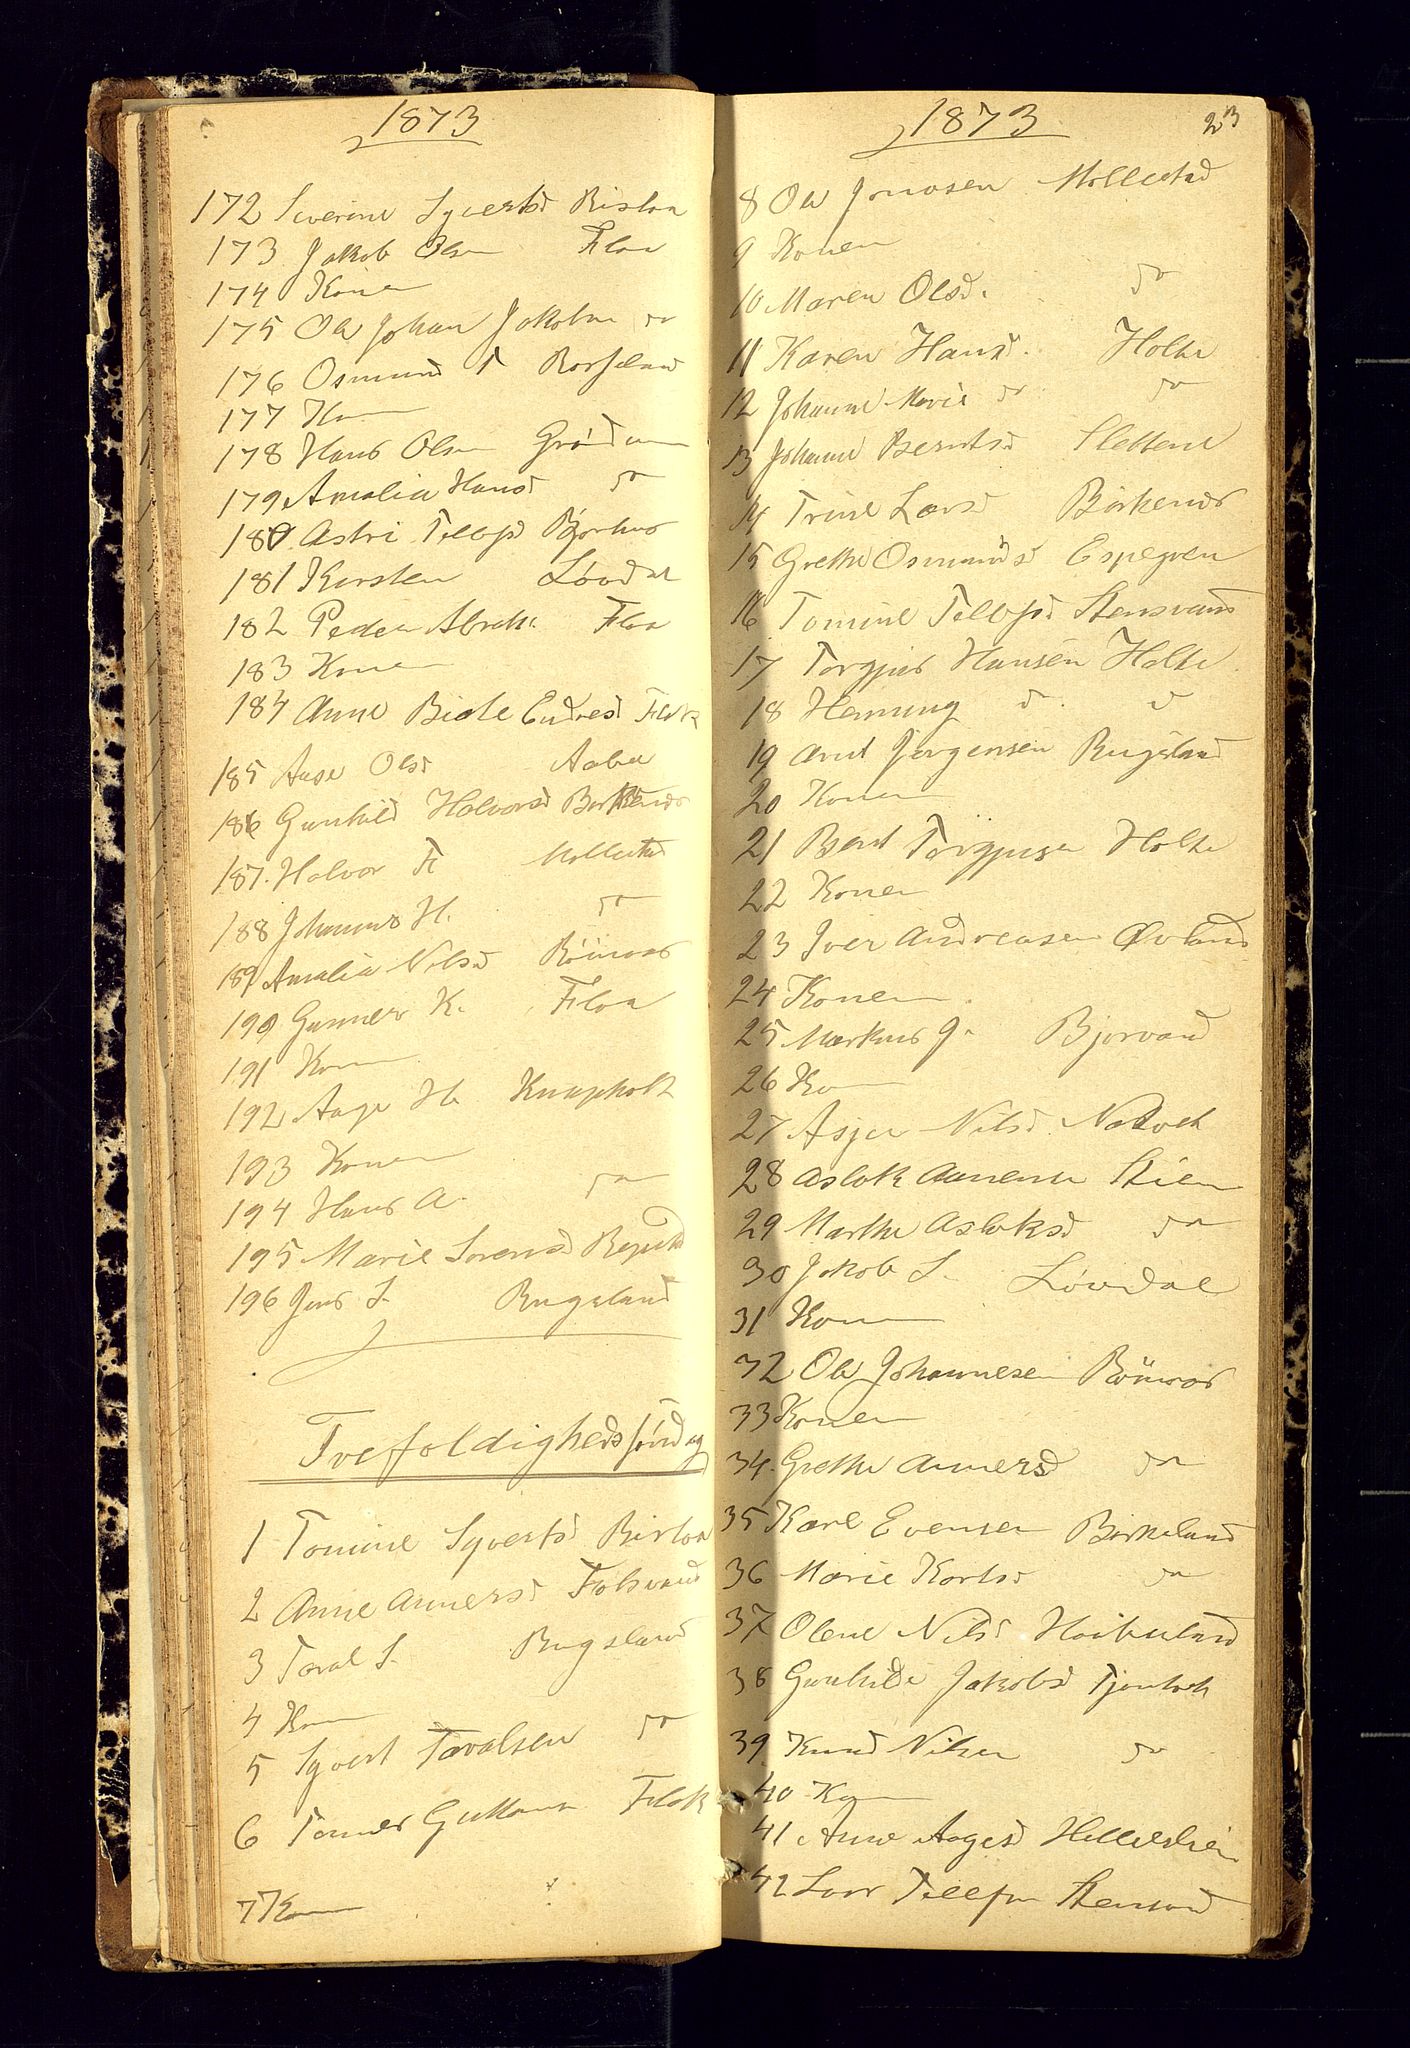 1873
172 Severine Syvertsd Risloa
173 Jakob Olsen Floa
174 Konen
175 Ole Johan Jakobsen do
176 Osmund T
177 Kon
178 Hans Olsen
179 Amalia Hansd do
180 Astri Tellefsd Bjorhus
181 Kirsten Løvdal
182 Peder Abrah. Floa
183 Konen
184 Anne Birte Endresd Flak
185 Aase Olsd Aabel
186 Gunhild Halvorsd Birkenes
187. Halvor T Mollestad
188 Johannes H. do
189 Amalia Nilsd
190 Gunner K. Floa
191 Kon
192 Aage H. Knapholt
193 Konen
194 Hans A. do
195 Marie Sorensd
196 Jens S. Rugsland
Trefoldighedssønd ag
1 Tomine Syvertsd Risloa
2 Anne Annersd Folsvand
3 Taral S. Rugsland
4 Kon
5 Syvert Taralsen do
6 Tomes Flak
7 Kon
1873
23
8 Ole Jonasen Mollestad
9 Konen
10 Maren Olsd. do
11 Karen Hansd. Holte
12 Johanne Marie do do
13 Johanne Berntsd Slettene
14 Trine Larsd Birkenes
15 Grethe Osmundsd Espegren
16 Tomine Tellefsd Stensvand
17 Torgjus Hansen Holte
18 Henning d d
19 Arnt Jorgensen Rugsland
20 Konen
21 Bent Torgjusen Holte
22 Konen
23 Iver Andreasen Øvland
24 Konen
25 Markus J. Bjorvand
26 Ko
27 Asjer Nilsd
28 Aslak Annensen Stien
29 Marthe Aslaksd do
30 Jakob S. Løvdal
31 Kon
32 Ole Johannesen
33 Konen
34. Grethe Annersd do
35 Karl Evensen Birkeland
36 Marie Karlsd do
37 Olene Nilsd
38 Gunhilde Jakobsd
39. Knud Nilsen do
40 Kon
41 Anne Aagesd
42 Lars Tellefsen Stensvand